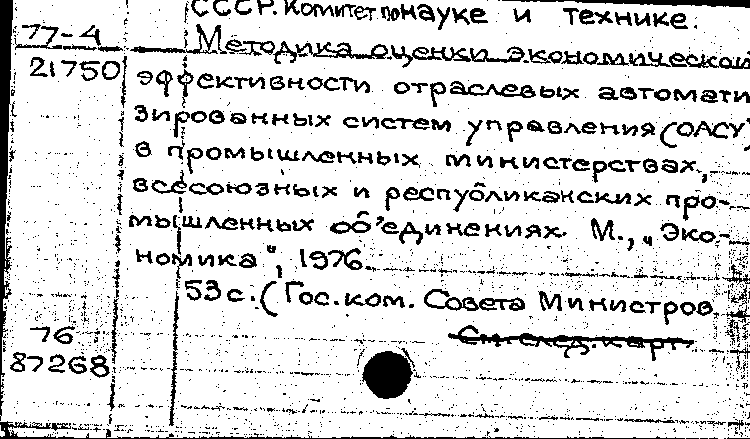 СССР. Комитет по науке и технике.
77-4
Методика оценки экономической
21750
эффективности отраслевых автомати
зированных систем управления (ОАСУ)
в промышленных министерствах,
всесоюзных и республиканских про-
мышленных об'единениях. М., „Эко-
номика", 1976.
53 с. (Гос. ком. Совета Министров
76
См. след. карт.
87268